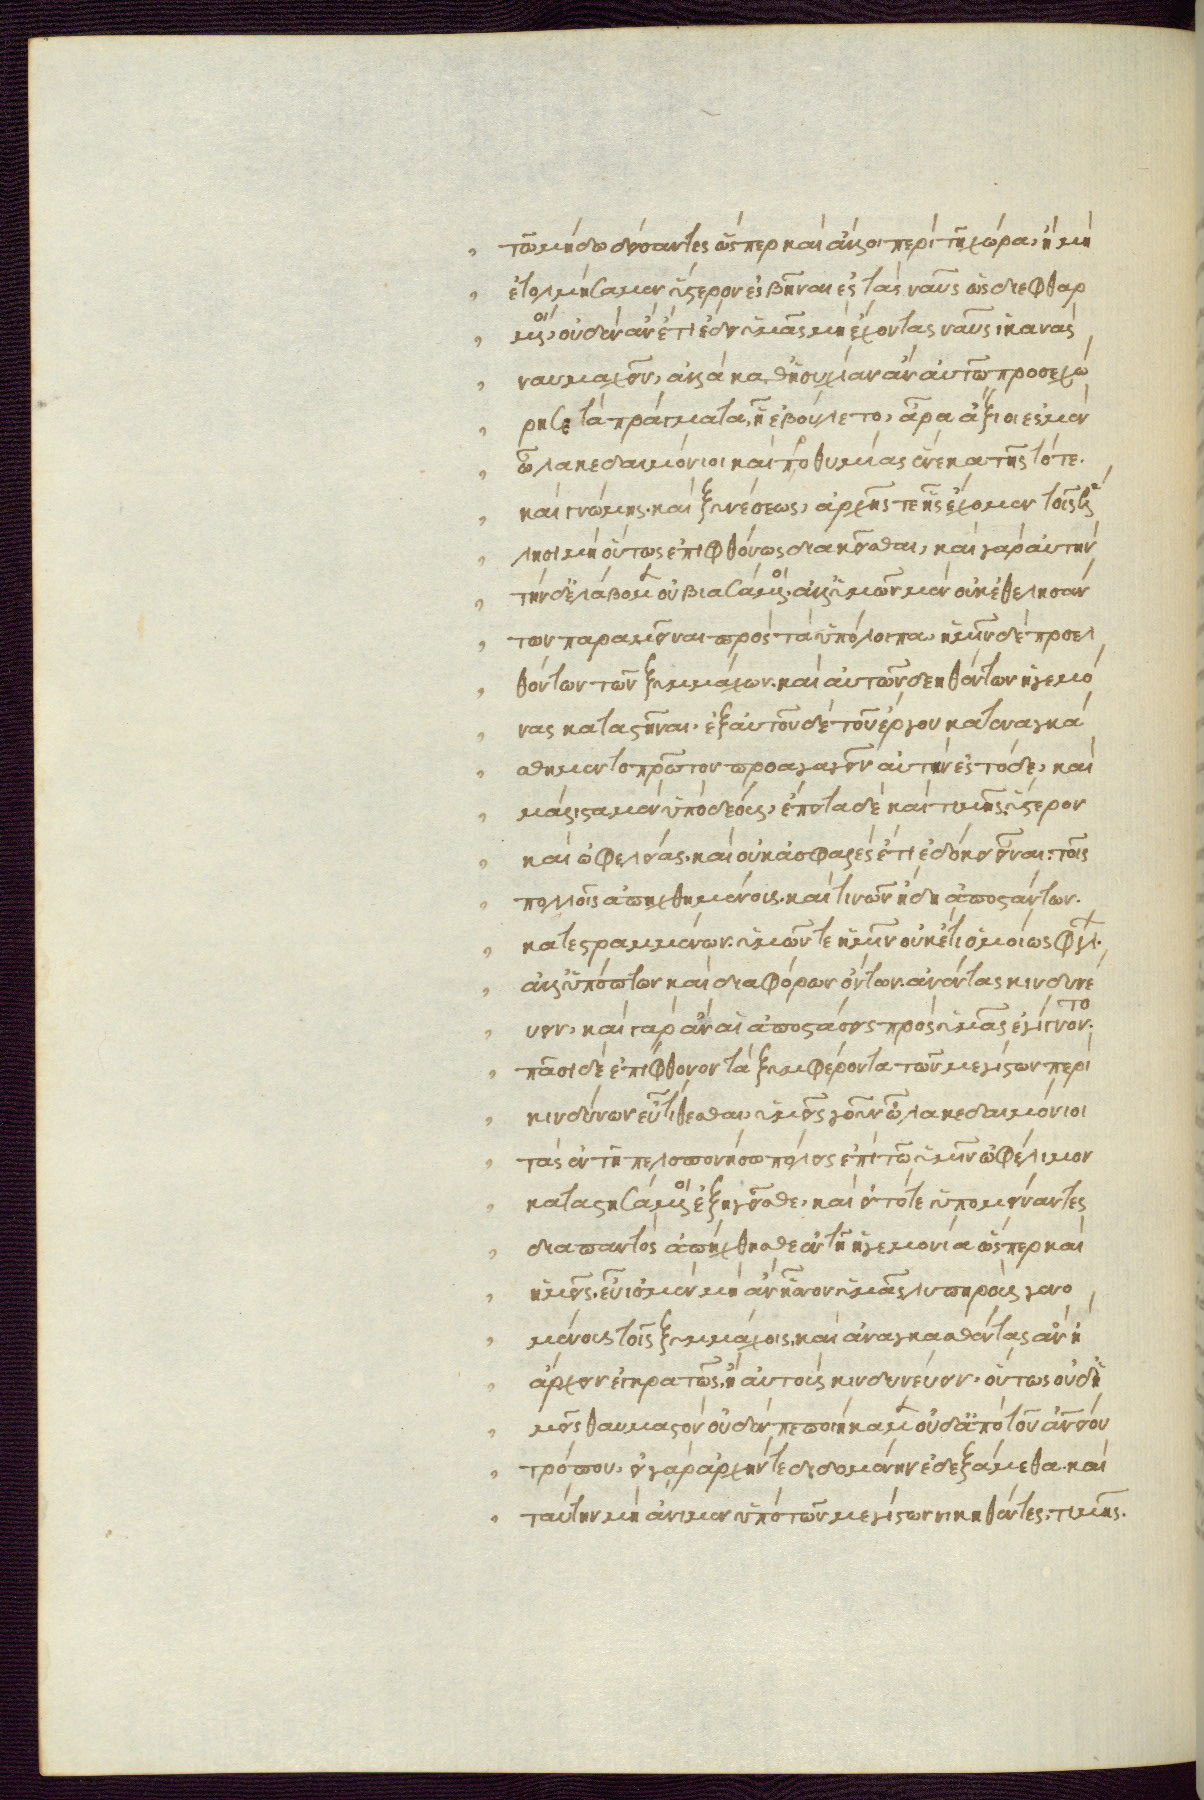 τῶ μήδω δείσαντες ὥσπερ καὶ ἄλλοι περὶ τῆ χώρα, ἢ μὴ
ἐτολμήσαμεν ὕστερον ἐσβῆναι ἐς τὰς ναῦς ὡς διεφθαρ
μένοι, οὐδὲν ἂν ἔτι ἔδει ὑμᾶς μὴ ἔχοντας ναῦς ἱκανὰς
ναυμαχεῖν, ἀλλὰ καθησυχίαν ἂν αὐτῶ προσεχώ
ρησε τὰ πράγματα, ἧ ἐβούλετο, ἆρα ἄξιοι ἐσμὲν
ὦ λακεδαιμόνιοι καὶ προθυμίας ἕνεκα τῆς τότε.
καὶ γνώμης. καὶ ξυνέσεως, ἀρχῆς τε ἧς ἔχομεν τοῖς ἕλ
λησι μὴ οὕτως ἐπιφθόνως διακεῖσθαι, καὶ γὰρ αὐτὴν
τήνδε ἐλάβομεν οὐ βιασάμενοι. ἀλλ' ὑμῶν μὲν οὐκ ἐθελησάν
των παραμεῖναι πρὸς τὰ ὑπόλοιπα, ἡμῖν δὲ προσελ
θόντων τῶν ξυμμάχων. καὶ αὐτῶν δεηθέντων ἡγεμό
νας καταστῆναι, ἐξ αὐτοῦ δὲ τοῦ ἔργου κατηναγκά
σθημεν τὸ πρῶτον προαγαγεῖν αὐτὴν ἐς τόδε, καὶ
μάλιστα μὲν ὑπὸ δέους, ἔπειτα δὲ καὶ τιμῆς. ὕστερον
καὶ ὠφελείας. καὶ οὐκ ἀσφαλὲς ἔτι ἐδόκει εἶναι. τοῖς
πολλοῖς ἀπηχθημένοις. καὶ τινῶν ἤδη ἀποστάντων.
κατεστραμμένων. ὑμῶν τε ἡμῖν οὐκέτι ὁμοίως φίλων.
ἀλλ' ὑπόπτων καὶ διαφόρων ὄντων. ἀνέντας κινδυνε
ύειν, καὶ γὰρ ἂν αἱ ἀποστάσεις πρὸς ὑμᾶς ἐγίγνοντο.
πᾶσι δὲ ἐπίφθονον τὰ ξυμφέροντα τῶν μεγίστων περὶ
κινδύνων εὖ τίθεσθαι, ὑμεῖς γοῦν ὦ λακεδαιμόνιοι
τὰς ἐν τῆ πελοποννήσω πόλεις ἐπὶ τῶ ὑμῖν ὠφέλιμον
καταστησάμενοι ἐξηγεῖσθε, καὶ εἰ τότε ὑπομείναντες
διαπαντὸς ἀπήχθησθε ἐν τῆ ἡγεμονία ὥσπερ καὶ
ἡμεῖς, εὖ ἴσμεν μὴ ἂν ἧσσον ὑμᾶς λυπηροὺς γενο
μένους τοῖς ξυμμάχοις. καὶ ἀναγκασθέντας ἂν ἢ
ἄρχειν ἐγκρατῶς, ἢ αὐτοὺς κινδυνεύειν. οὕτως οὐδ' ἡ
μεῖς θαυμαστὸν οὐδὲν πεποιήκαμεν οὐδ' ἀπὸ τοῦ ἀνθρωπείου
τρόπου, εἰ γὰρ ἀρχήν τε διδομένην ἐδεξάμεθα. καὶ
ταύτην μὴ ἀνεῖμεν ὑπὸ τῶν μεγίστων νικηθέντες. τιμῆς.